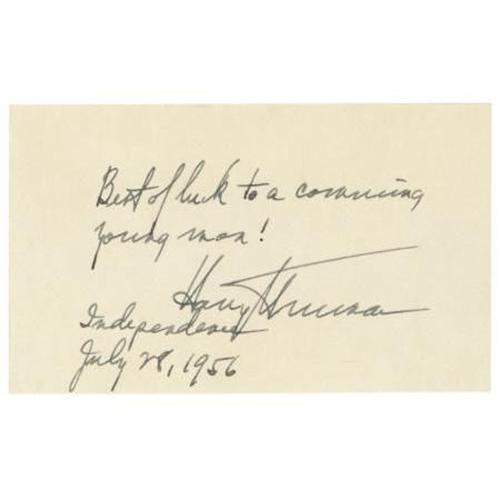 Best of luck to a comming
young man!
Harry Truman
Independence
July 28, 1956